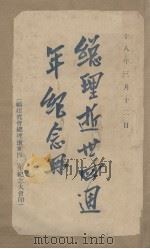 十八年三月十二日
總理逝世四週
年紀念冊
總理逝世四週年紀念大會印